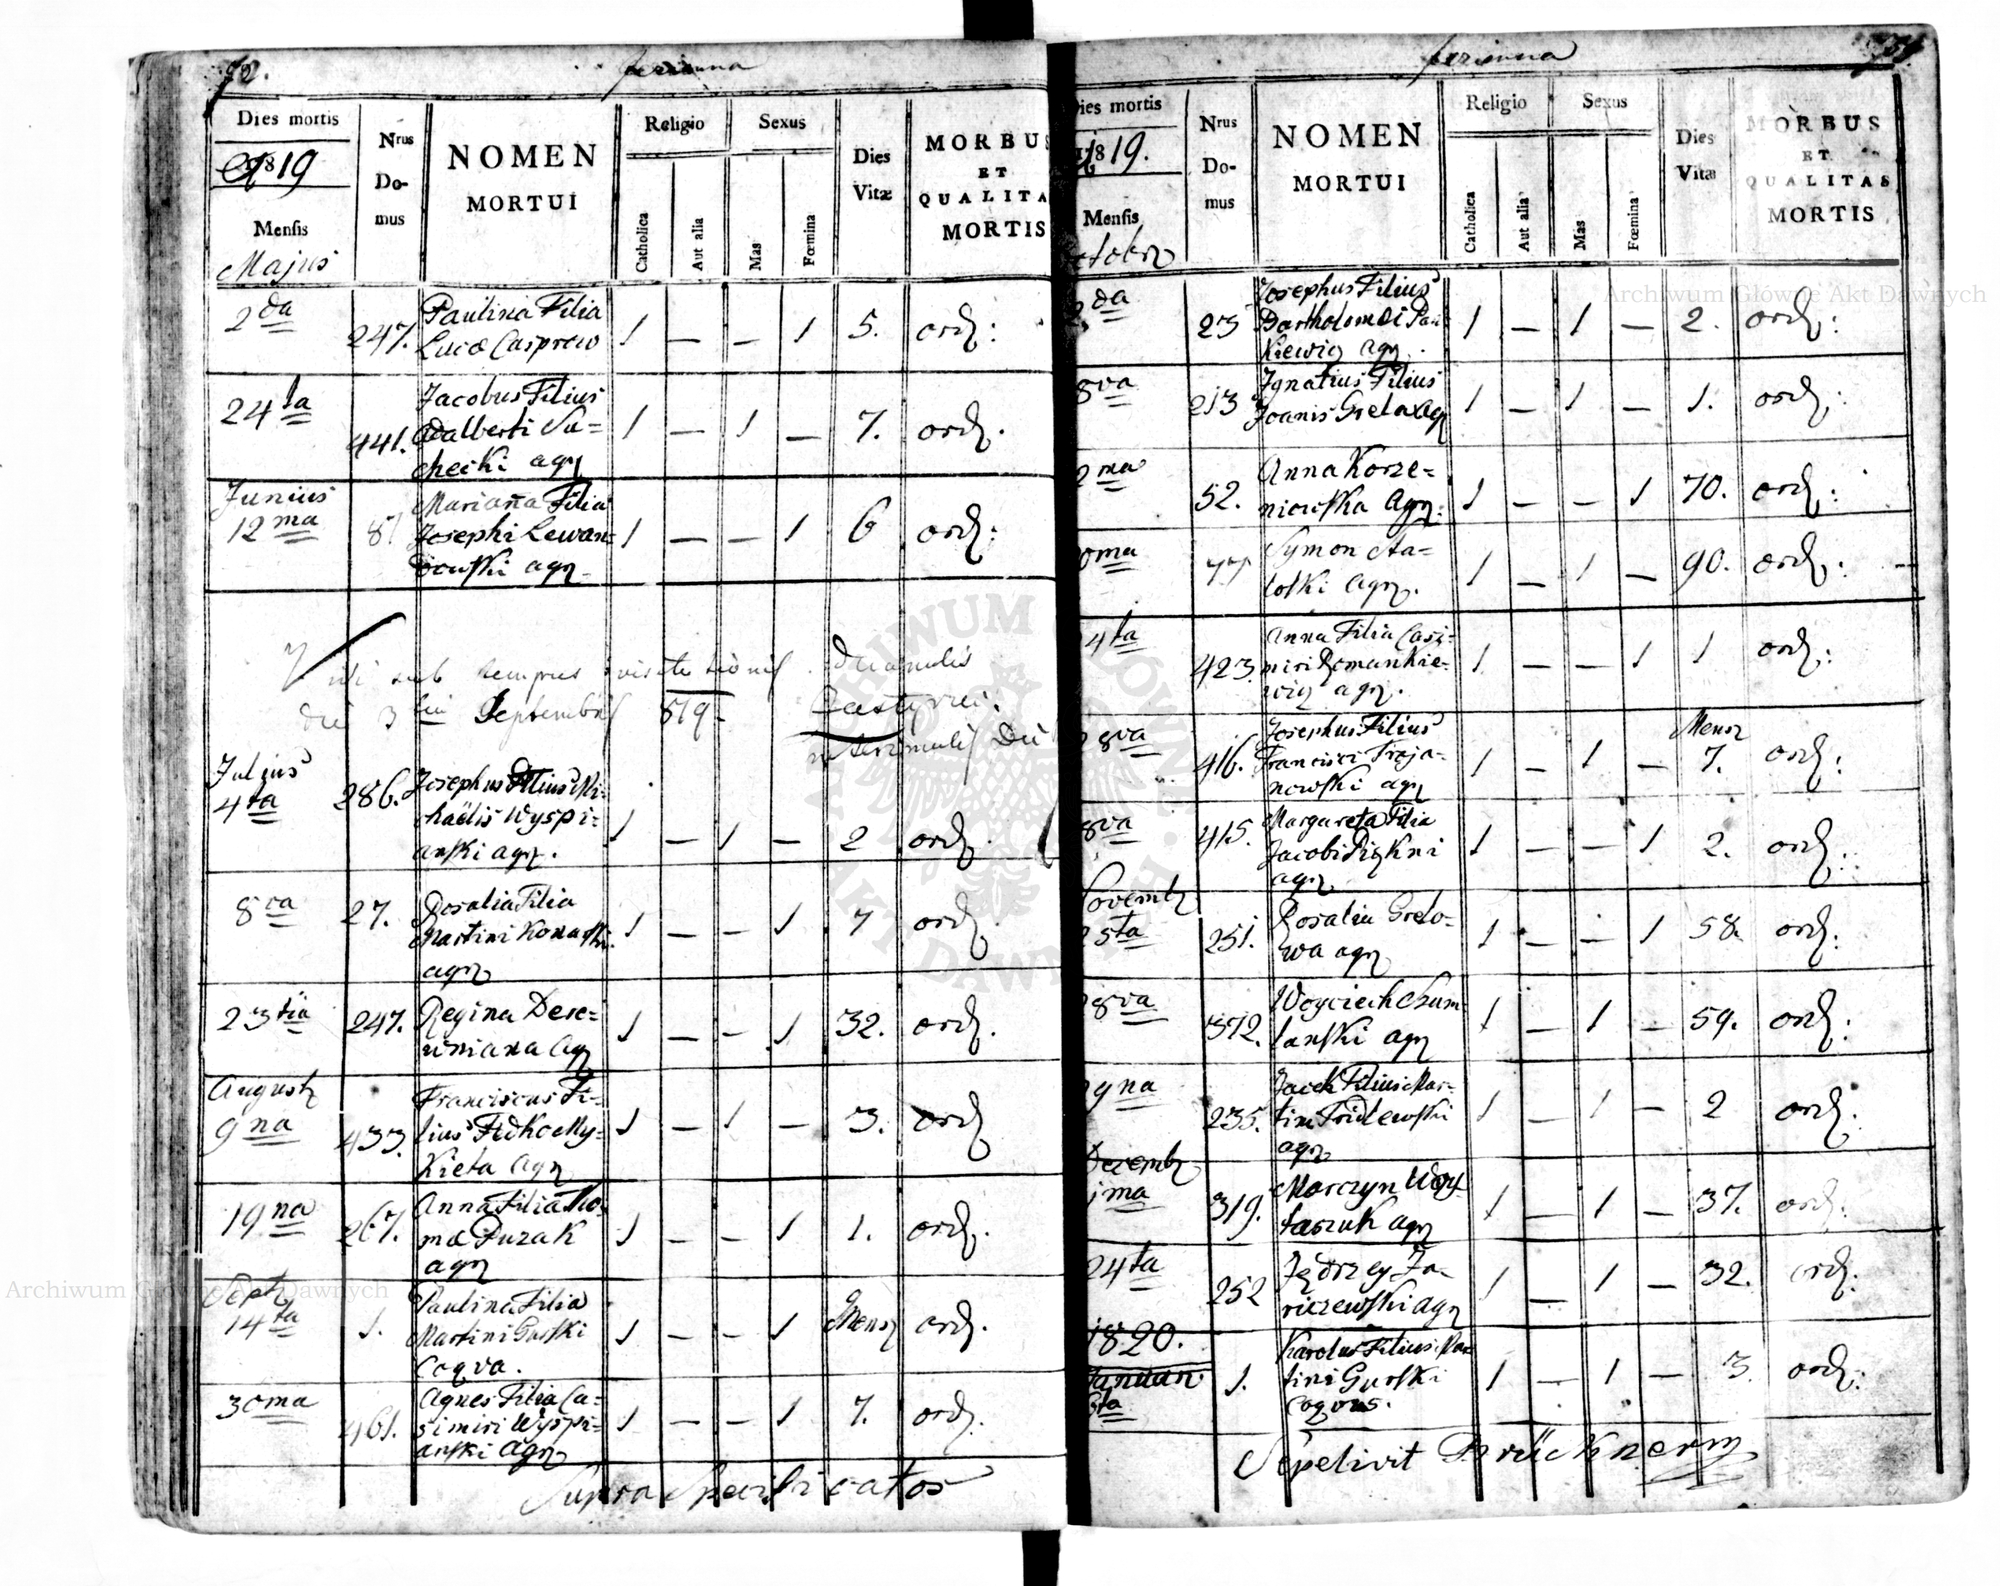 72.
Dies mortis
1819
Mensis
Majus
Nrus
Do-
mus
NOMEN
MORTUI
Religio
Catholica
Aut alia
Sexus
Mas
Fœmina
Dies
Vitæ
MORBUS
ET
QUALITA
MORTIS
2da 247. Paulina Filia
Lucæ Casprow 1 — — 1 5. ord:
24ta 441. Jacobus Filius
Adalberti Su=
checki agr 1 — 1 — 7. ord.
Junius
12ma 81 Marianna Filia
Josephi Lewan=
dowski agr 1 — — 1 6 ord:
Vidi sub tempus visitationis Decanalis
die 3tia Septembris 819
Julius
4ta 286. Josephus Filius Mi=
chaëlis Wyspi=
anski agr. 1 — 1 — 2 ord.
8va 27. Rosalia Filia
Martini Konarski
agr 1 — — 1 7 ord.
23tia 247. Regina Dere=
niana agr 1 — — 1 32. ord.
August
9na 433. Franciscus Fi=
lius Fedko My=
kieta agr 1 — 1 — 3. ord
19na 267. Anna Filia Tho=
mæ Duzak
agr 1 — — 1 1. ord.
Septr
14ta 1. Paulina Filia
Martini Gurski
coqva. 1 — — 1 Mens ord.
30ma 461. Agnes Filia Ca=
simiri Wyspi=
anski agr 1 — — 1 7. ord.
Supra Specificatos
Dies mortis
1819.
Mensis
ctobr
Nrus
Do-
mus
NOMEN
MORTUI
Religio
Catholica
Aut alia
Sexus
Mas
Fœmina
Dies
Vitæ
MORBUS
ET
QUALITAS
MORTIS
2da 23 Josephus Filius
Bartholomæi Pan
kiewicz agr. 1 — 1 — 2. ord:
8va 213 Ignatius Filius
Joanis Grela agr 1 — 1 — 1. ord:
2ma 52. Anna Korze=
niowska agr. 1 — — 1 70. ord:
0ma 77 Symon
agr. 1 — 1 — 90. ord:
4ta 423. Anna Filia Casi=
miri Romankie=
wicz agr. 1 — — 1 1 ord:
8va 416. Josephus Filius
Francisci Troja=
nowski agr 1 — 1 — Mens
7. ord:
8va 415. Margareta Filia
Jacobi Piękni
agr 1 — — 1 2. ord:
Novembr
5ta 251. Rosalia Grelo=
wa agr 1 — — 1 58. ord:
8va 372. Woyciech Szum=
lanski agr 1 — 1 — 59. ord:
9na 235. Jacek Filius Mar=
tini Fridlewski
agr 1 — 1 — 2 ord:
Decembr
1ma 319. Marczyn Woy=
taszuk agr 1 — 1 — 37. ord.
24ta 252 Jędrzey Za=
riczewski agr 1 — 1 — 32. ord.
1820.
Januari
6ta 1. Karolus Filius Mar
tini Gurski
coqvus. 1 — 1 — 3. ord:
Sepelivit Brückner
Archiwum Główne Akt Dawnych
Archiwum Główne Akt Dawnych